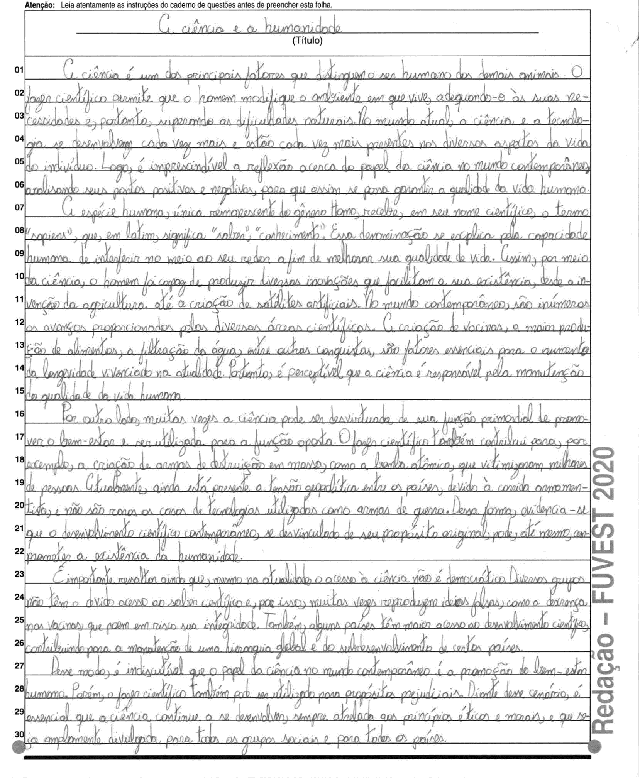 Atenção: Leia atentamente as instruções do caderno de questões antes de preencher esta folha.
A ciência e a humanidade
(Título)
01 A ciência é um dos principais fatores que distinguem o ser humano dos demais animais. O
02 fazer científico permite que o homem modifique o ambiente em que vive, adequando-o às suas ne-
03 cessidades e, portanto, superando as dificuldades naturais. No mundo atual, a ciência e a tecnolo-
04 gia se desenvolvem cada vez mais e estão cada vez mais presentes nos diversos aspectos da vida
05 do indivíduo. Logo, é imprescindível a reflexão acerca do papel da ciência no mundo contemporâneo,
06 analisando seus pontos positivos e negativos, para que assim se possa garantir a qualidade da vida humana.
07 A espécie humana, única remanescente do gênero Homo, recebe, em seu nome científico, o termo
08 "sapiens", que, em latim, significa "saber", "conhecimento". Essa denominação se explica pela capacidade
09 humana de interferir no meio ao seu redor a fim de melhorar sua qualidade de vida. Assim, por meio
10 da ciência, o homem foi capaz de produzir diversas inovações que facilitam a sua existência, desde a in-
11 venção da agricultura até a criação de satélites artificiais. No mundo contemporâneo, são inúmeros
12 os avanços proporcionados pelas diversas áreas científicas. A criação de vacinas, a maior produ-
13 ção de alimentos, a filtração da água, entre outras conquistas, são fatores essenciais para o aumento
14 da longevidade vivenciado na atualidade. Portanto, é perceptível que a ciência é responsável pela manutenção
15 da qualidade da vida humana.
16 Por outro lado, muitas vezes a ciência pode ser desvirtuada de sua função primordial de promo-
17 ver o bem-estar e ser utilizada para a função oposta. O fazer científico também contribui para, por
18 exemplo, a criação de armas de destruição em massa, como a bomba atômica, que vitimizaram milhares
19 de pessoas. Atualmente, ainda está presente a tensão geopolítica entre os países, devido à corrida armamen-
20 tista, e não são raros os casos de tecnologias utilizadas como armas de guerra. Dessa forma, evidencia-se
21 que o desenvolvimento científico contemporâneo, se desvinculado de seu propósito original, pode, até mesmo, com-
22 prometer a existência da humanidade.
23 É importante ressaltar ainda que, mesmo na atualidade, o acesso à ciência não é democrático. Diversos grupos
24 não têm o devido acesso ao saber científico e, por isso, muitas vezes reproduzem ideias falsas, como a descrença
25 nas vacinas, que põem em risco sua integridade. Também, alguns países têm maior acesso ao desenvolvimento científico,
26 contribuindo para a manutenção de uma hierarquia global e do subdesenvolvimento de certos países.
27 Desse modo, é indiscutível que o papel da ciência no mundo contemporâneo é a promoção do bem-estar
28 humano. Porém, o fazer científico também pode ser utilizado para propósitos prejudiciais. Diante desse cenário, é
29 essencial que a ciência continue a se desenvolver, sempre atrelada aos princípios éticos e morais, e que se-
30 ja amplamente divulgada para todos os grupos sociais e para todos os países.
Redação – FUVEST 2020